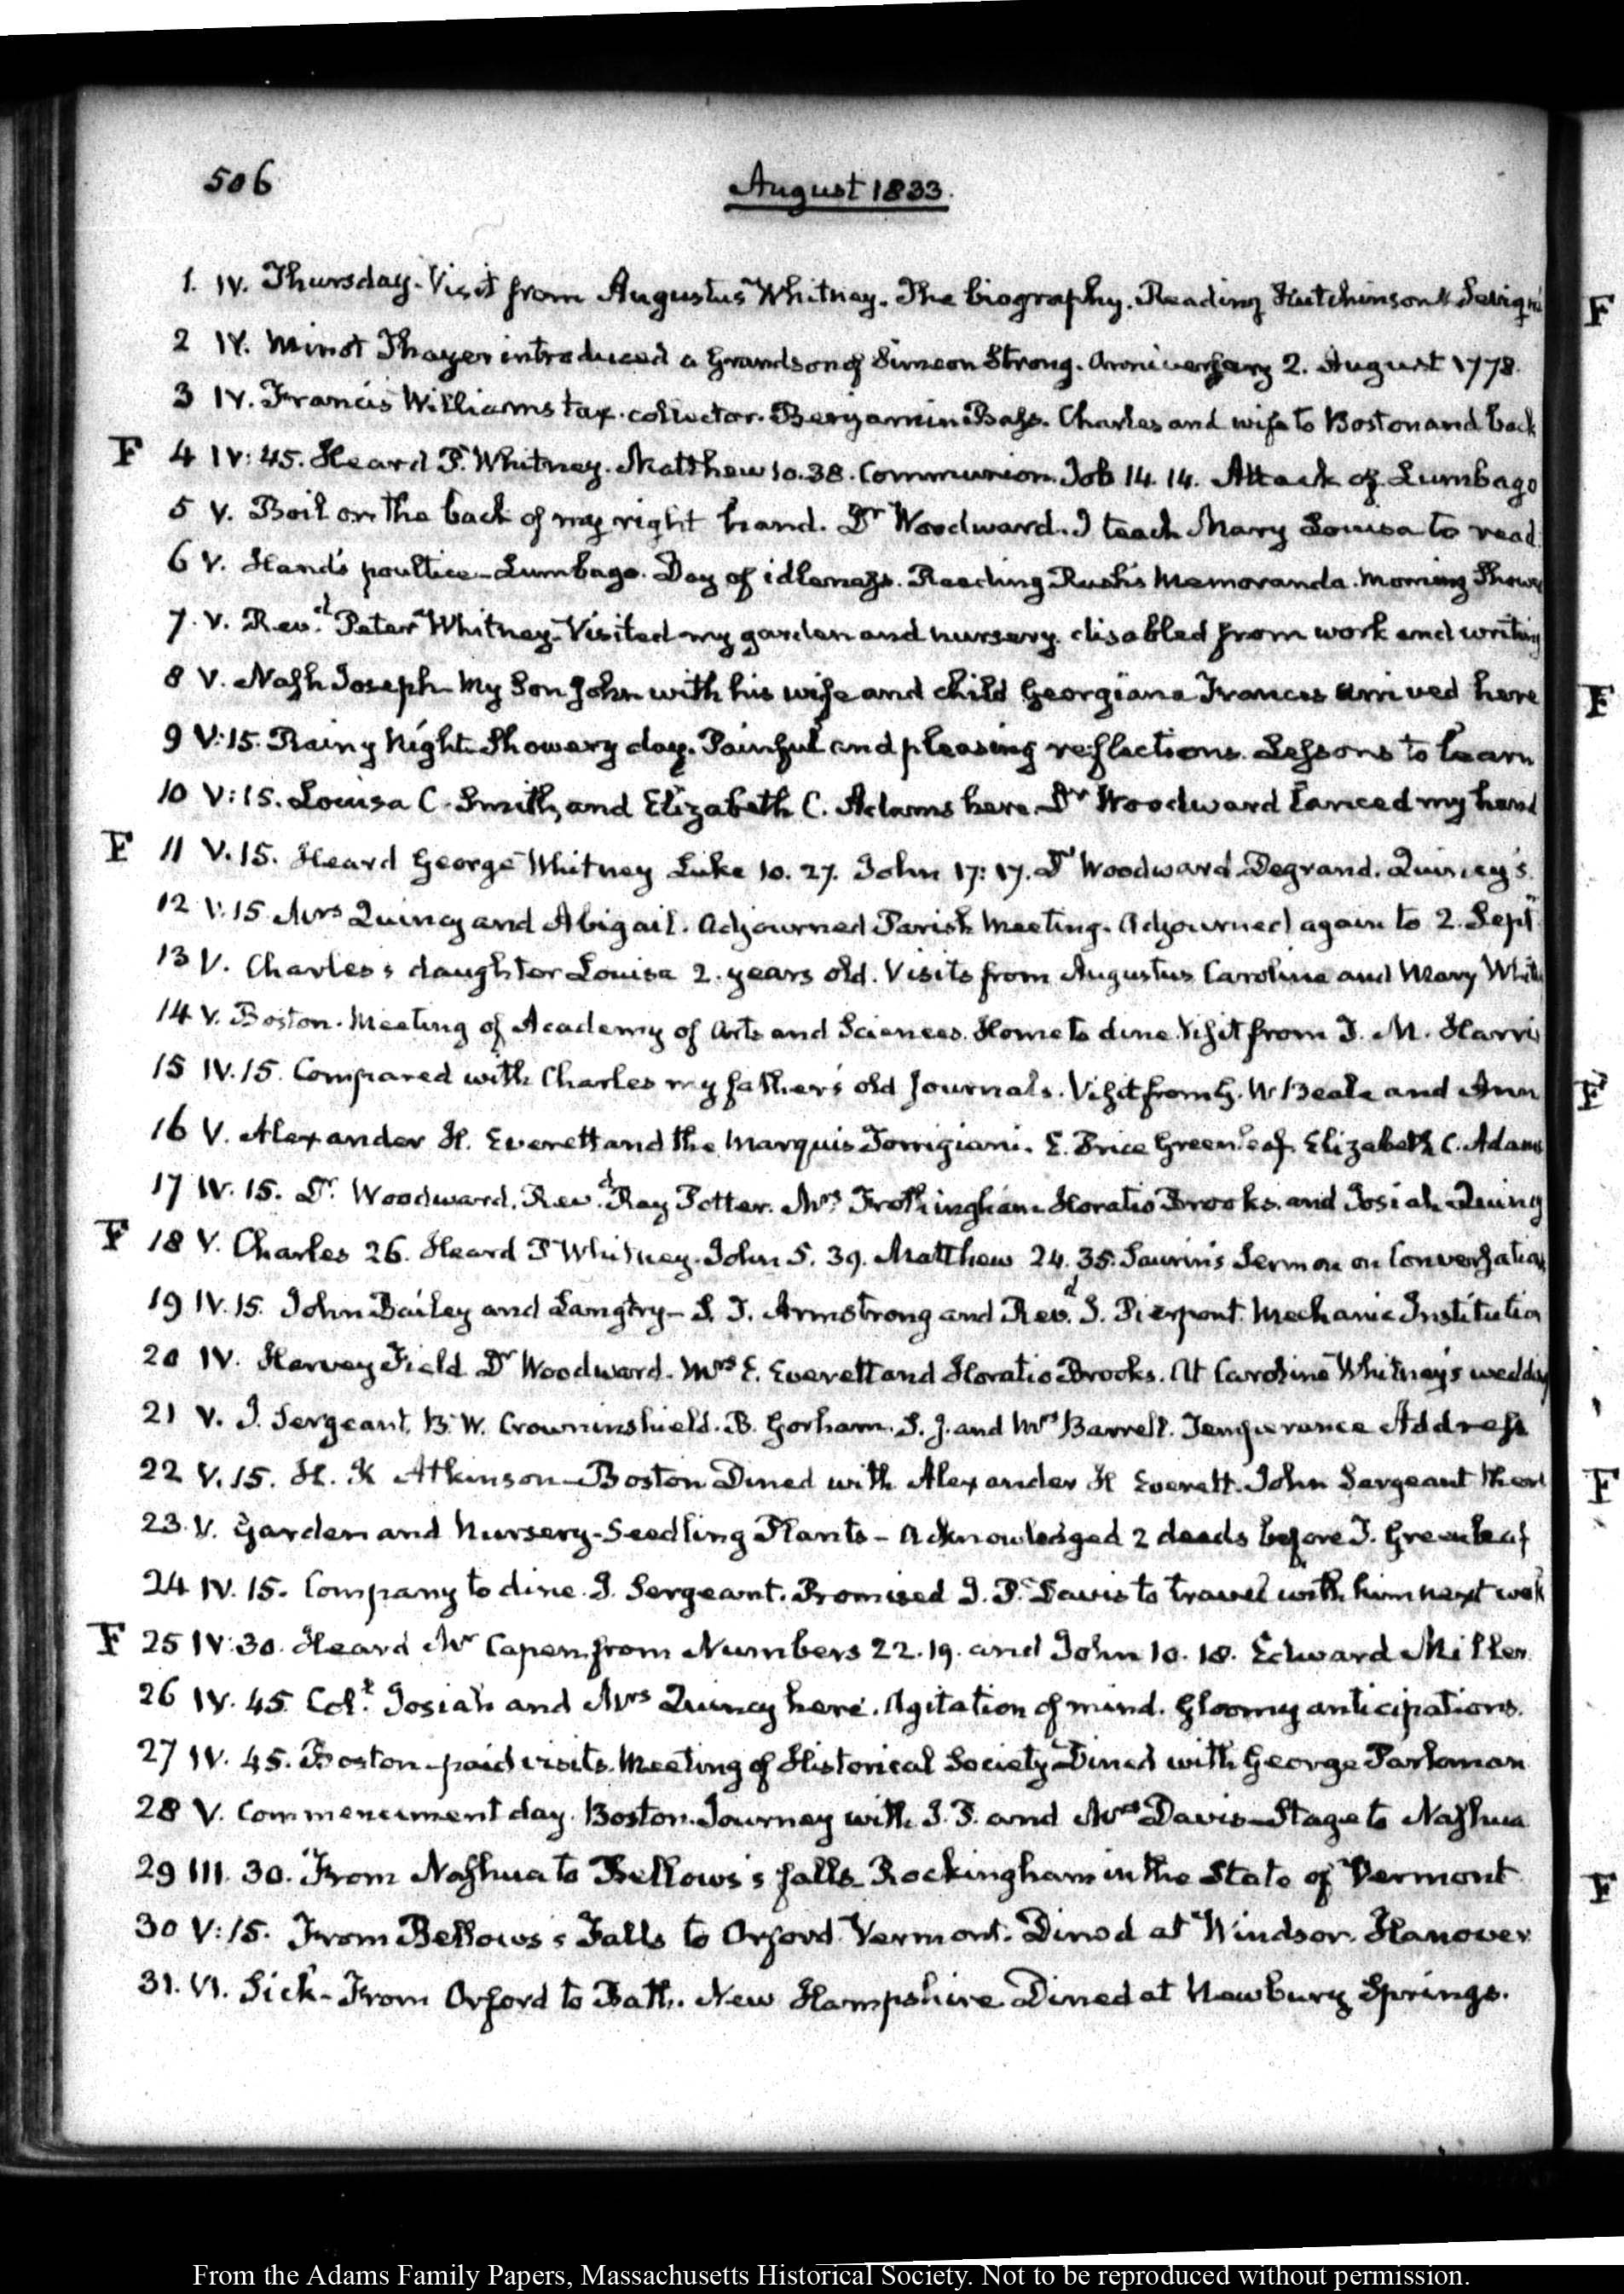 506
August 1833.
1. IV. Thursday. Visit from Augustus Whitney. The biography. Reading Hutchinson
2 IV. Minot Thayer introduced a Grandson of Simeon Strong. Anniversary 2. August 1778.
3 IV. Francis Williams tax-collector. Benjamin Bass. Charles and wife to Boston and back
F 4 IV:45. Heard P. Whitney. Matthew 10.38. Communion. Job 14.14. Attack of Lumbago
5 V. Boil on the back of my right hand. Dr Woodward. I teach Mary Louisa to read.
6 V. Hand's poultice—Lumbago. Day of idleness. Reading Rush's Memoranda. Morning Shower
7. V. Revd. Peter Whitney. Visited my garden and nursery. disabled from work and writing
8 V. Nash Joseph—My Son John with his wife and child Georgiana Frances arrived here
9 V:15. Rainy Night. Showery day. Painful and pleasing reflections. Lessons to learn
10 V:15. Louisa C. Smith, and Elizabeth C. Adams here. Dr Woodward lanced my hand
F 11 V.15. Heard George Whitney Luke 10.27. John 17:17. Dr Woodward. Degrand. Quincy's.
12 V.15 Mrs Quincy and Abigail. Adjourned Parish Meeting. Adjourned again to 2. Sept
13 V. Charles's daughter Louisa 2. years old. Visits from Augustus Caroline and Mary
14 V. Boston. Meeting of Academy of Arts and Sciences. Home to dine. Visit from T. M. Harris
15 IV.15. Compared with Charles my father's old Journals. Visit from G. W Beale and Ann
16 V. Alexander H. Everett and the Marquis Torrigiani. E. Price Greenleaf Elizabeth C. Adams
17 IV.15. Dr. Woodward. Revd. Ray Potter. Mrs Frothingham Horatio Brooks. and Josiah Quincy
F 18 V. Charles 26. Heard P Whitney. John 5.39. Matthew 24.35. Saurin's Sermon on Conversation
19 IV.15. John Bailey and Langtry—S. T. Armstrong and Revd. J. Pierpont. Mechanic Institution
20 IV. Harvey Field Dr Woodward. Mrs E. Everett and Horatio Brooks. At Caroline Whitney's wedding
21 V. J. Sergeant, B. W. Crowninshield. B. Gorham. S. J. and Mrs Barrell. Temperance Address
22 V.15. H. K Atkinson—Boston Dined with Alexander H Everett. John Sergeant there
23. V. Garden and Nursery—Seedling Plants—Acknowledged 2 deeds before T. Greenleaf
24 IV.15. Company to dine. J. Sergeant. Promised I. P. Davis to travel with him next week
F 25 IV:30. Heard Mr Capen from Numbers 22.19. and John 10.18. Edward Miller.
26 IV.45. Coll. Josiah and Mrs Quincy here. Agitation of mind. Gloomy anticipations.
27 IV.45. Boston—paid visits. Meeting of Historical Society Dined with George Parkman
28 V. Commencement day. Boston. Journey with I. P. and Mrs Davis—Stage to Nashua
29 III.30. From Nashua to Bellows's falls—Rockingham in the State of Vermont
30 V:15. From Bellows's Falls to Orford Vermont. Dined at Windsor. Hanover
31. VI. Sick—From Orford to Bath. New Hampshire. Dined at Newbury Springs.
From the Adams Family Papers, Massachusetts Historical Society. Not to be reproduced without permission.